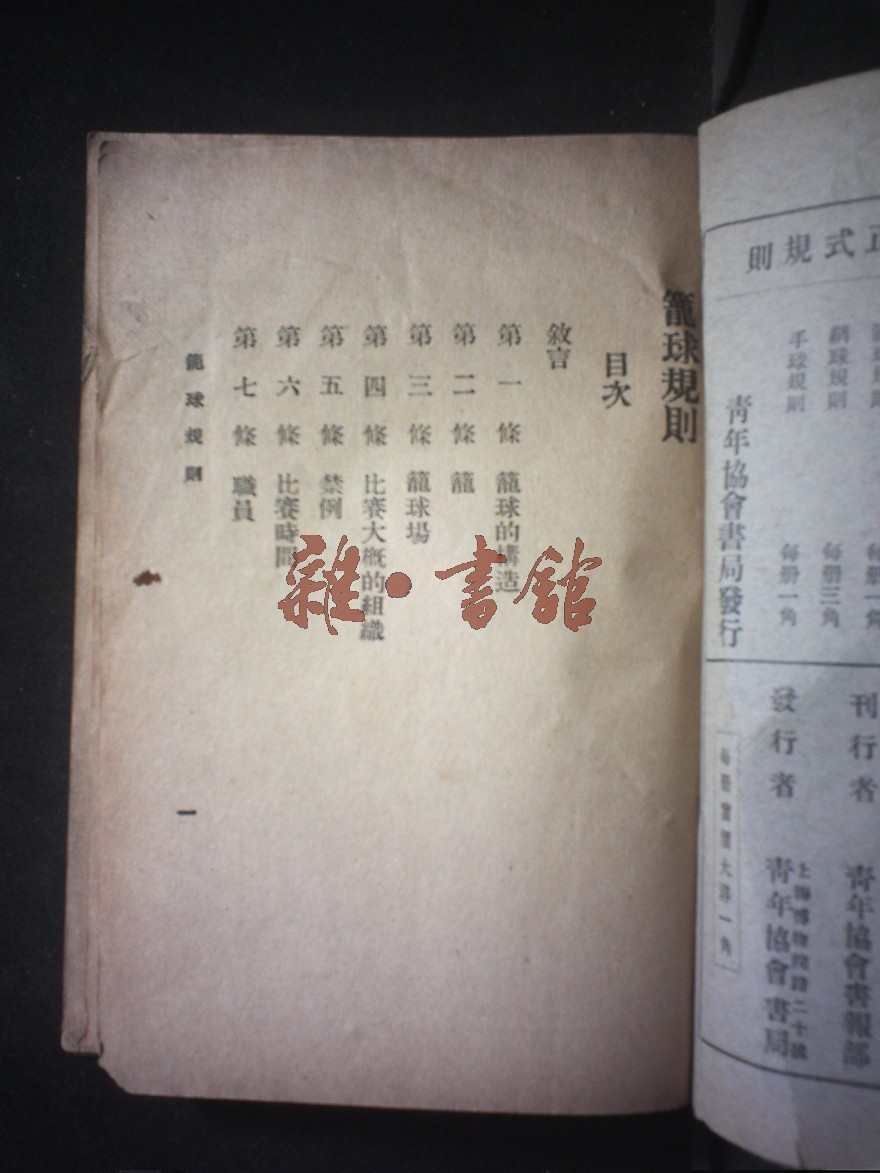 正式規則
規則
網球規則 每册三角
手球規則 每册一角
青年協會書局發行
刊行者 青年協會書報部
發行者 上海博物院路二十號 青年協會書局
每册實價大洋一角
籠球規則
目次
敘言
第一條 籠球的構造
第二條 籠
第三條 籠球場
第四條 比賽大概的組織
第五條 禁例
第六條 比賽時間
第七條 職員
籠球規則
一
雜·書館